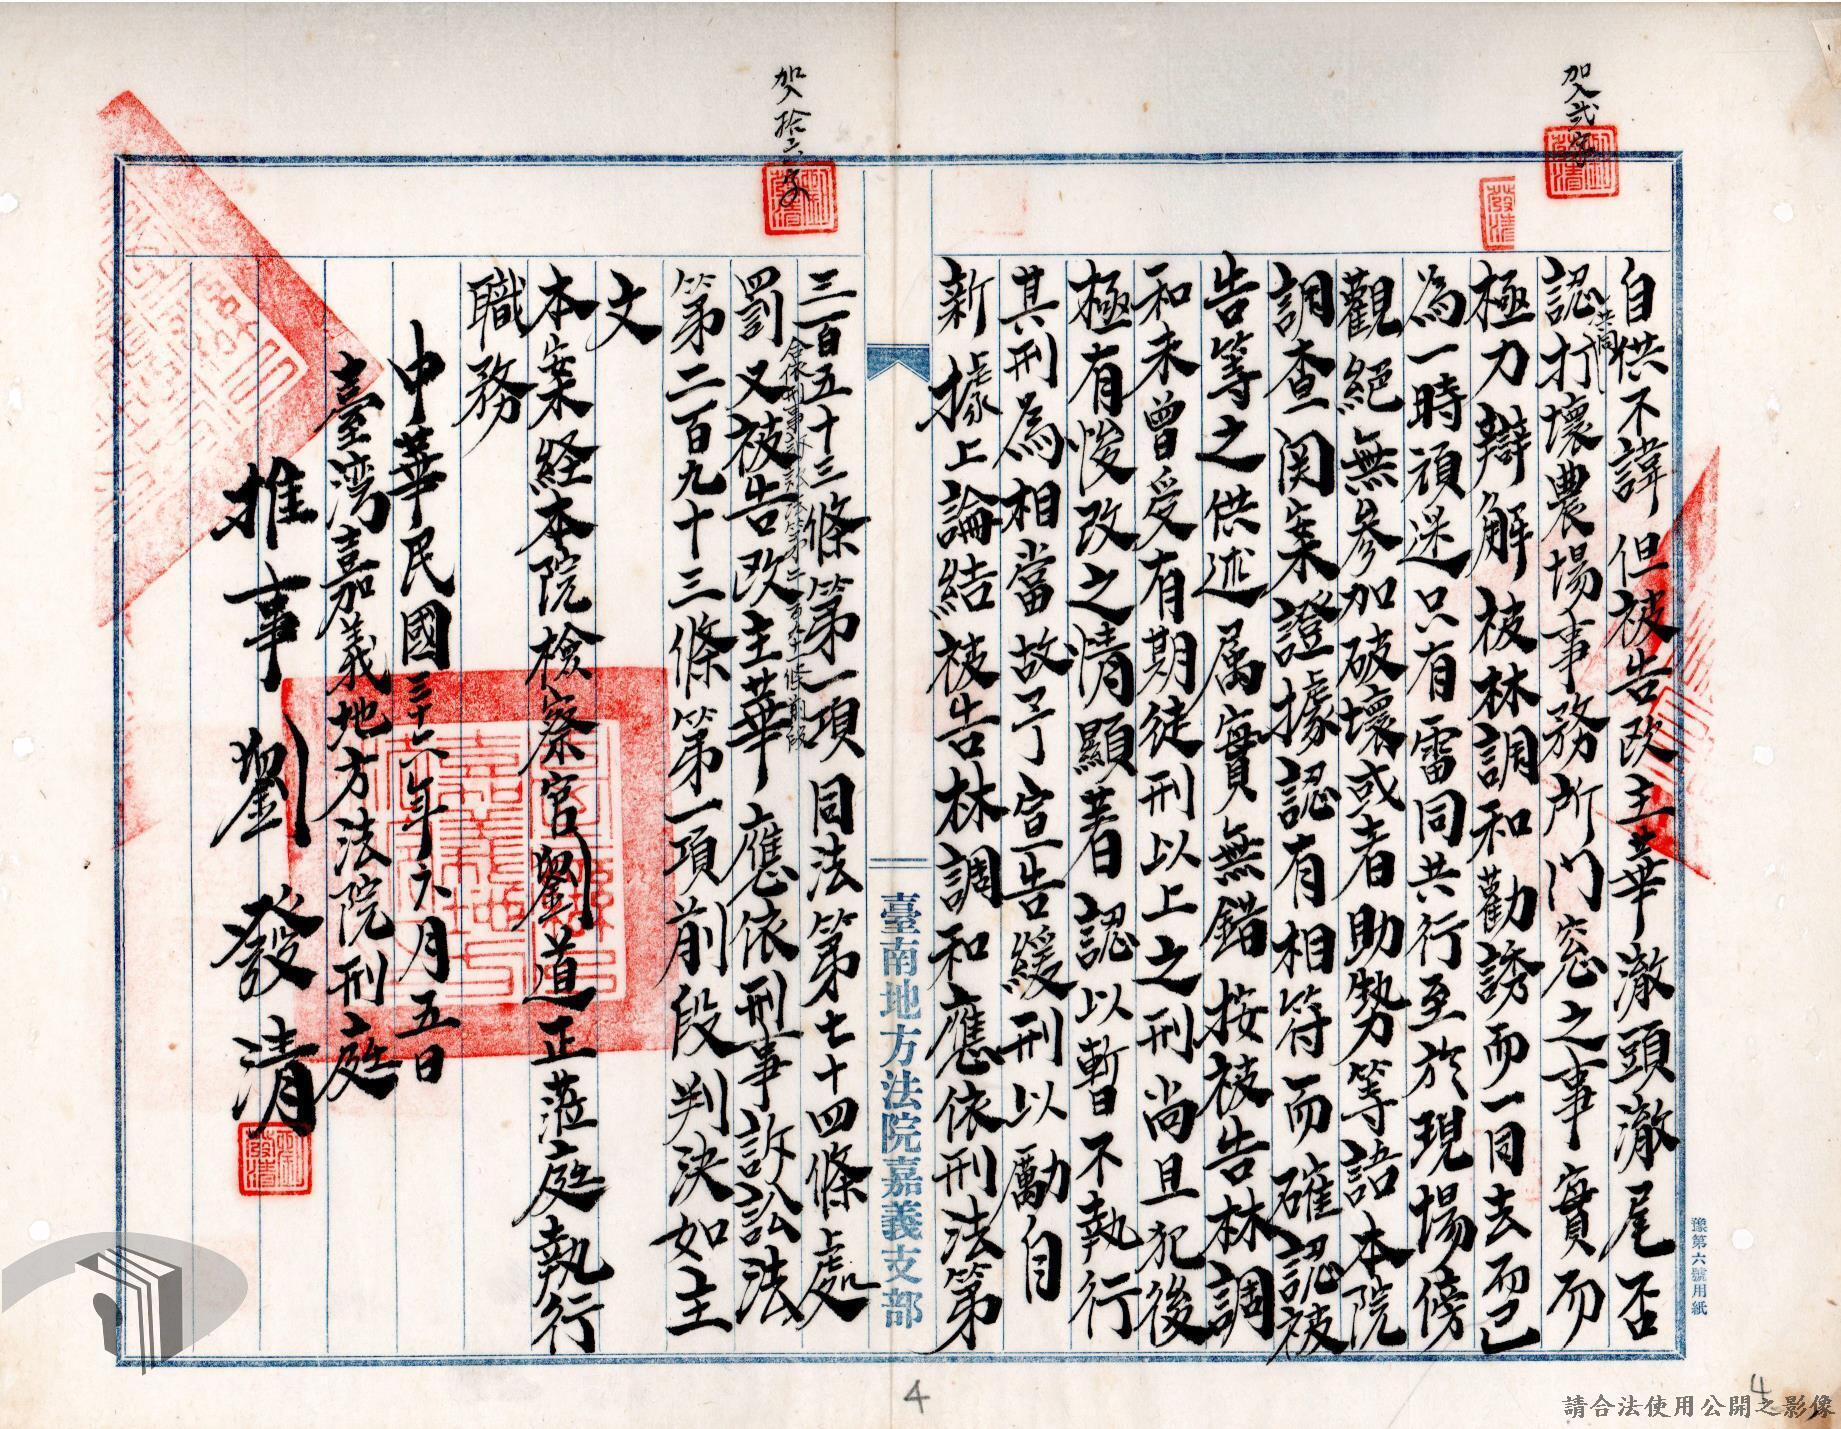 加入貳字
自供不諱但被告改主華澈頭澈尾否
認共同打壞農場事務所門窓之事實而
極力辯解被林調和勸誘而一同去而已
為一時頑迷只有雷同共行至於現場傍
觀絕無參加破壞或者助勢等語本院
調查関案證據認有相符而確認被
告等之供述属實無錯按被告林調
和未曾受有期徒刑以上之刑尚且犯後
極有悛改之情顯著認以暫不執行
其刑為相當故予宣告緩刑以勵自
新據上論結被告林調和應依刑法第
加入拾六字
三百五十三條第一項同法第七十四條處
罰又被告改主華應依刑事訴訟法
第二百九十三條第一項前段判決如主
文
本案経本院檢察官劉道正蒞庭執行
職務
中華民國三十六年六月五日
臺湾嘉義地方法院刑庭
推事劉發清
臺南地方法院嘉義支部
豫第六號用紙
4
4
請合法使用公開之影像